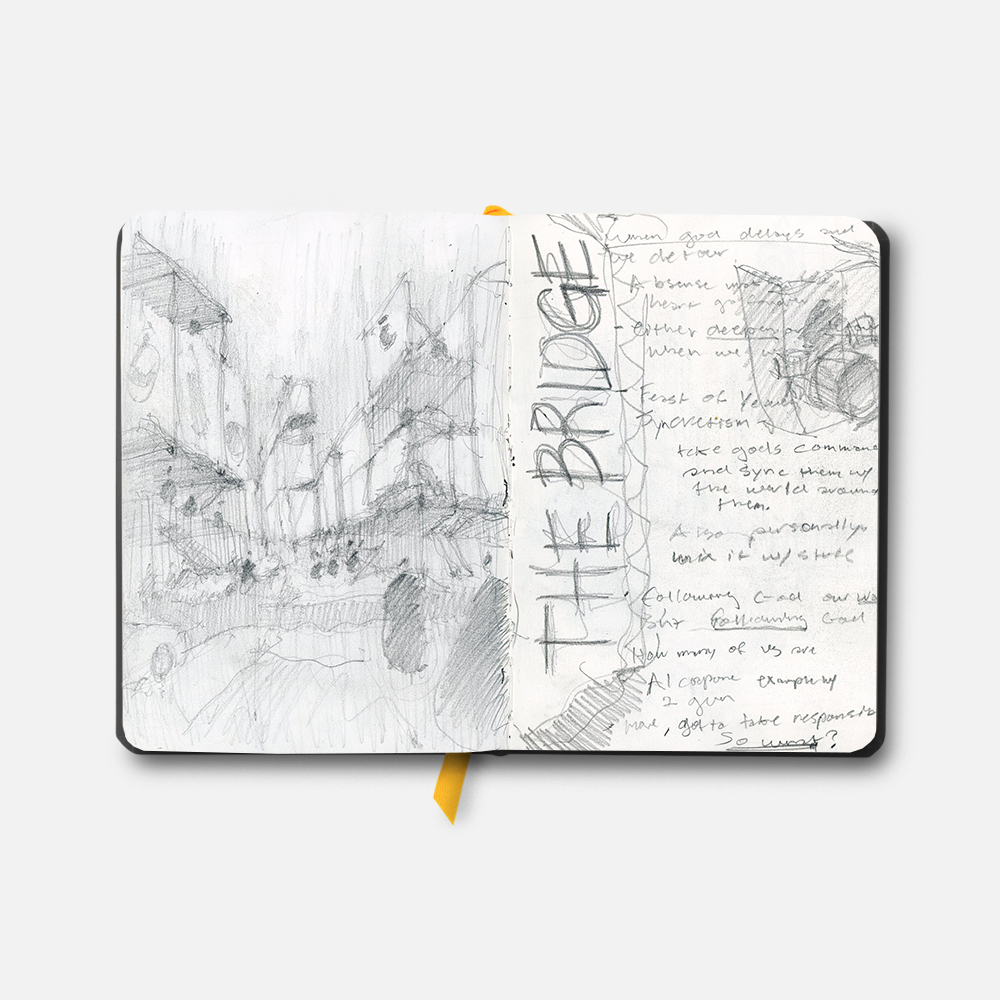 THE BRIDGE
when god delays and
we detour
Absense
heart
- Either deepens
when we
Feast of
Syncretism -
take gods command
and sync them w/
the world around
them.
Also personally
mix it w/
Following God our
isn't following God
How many of us are
Al capone example w/
2 gun
, got to take responsib
So what?